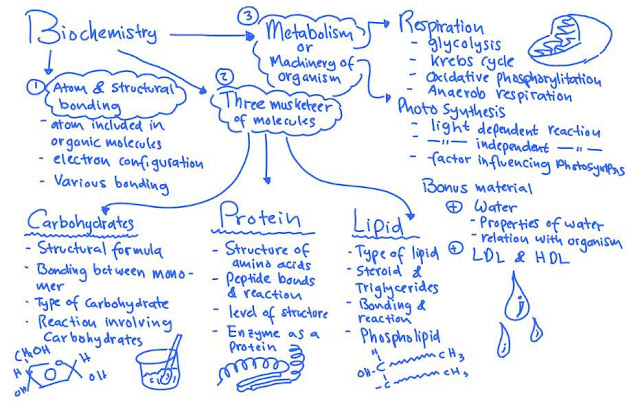 Biochemistry
① Atom & Structural
bonding
- atom included in
organic molecules
- electron configuration
- Various bonding
②
Three musketeer
of molecules
③
Metabolism
or
Machinery of
organism
Respiration
- glycolysis
- Krebs cycle
- Oxidative phosphorylitation
- Anaerob respiration
Photo Synthesis
- light dependent reaction
- —〃— independent —〃—
- factor influencing photosynthesis
Bonus material
⊕ Water
- Properties of water
- relation with organism
⊕ LDL & HDL
Carbohydrates
- Structural formula
- Bonding between mono-
mer
- Type of Carbohydrate
- Reaction involving
Carbohydrates
CH₂OH
H
H
OH
O
OH
Protein
- Structure of
amino acids
- Peptide bonds
& reaction
- level of structure
- Enzyme as a
Protein
Lipid
- Type of lipid
- Steroid &
Triglycerides
- Bonding &
reaction
- Phospholipid
H
OH-C CH₃
-C CH₃